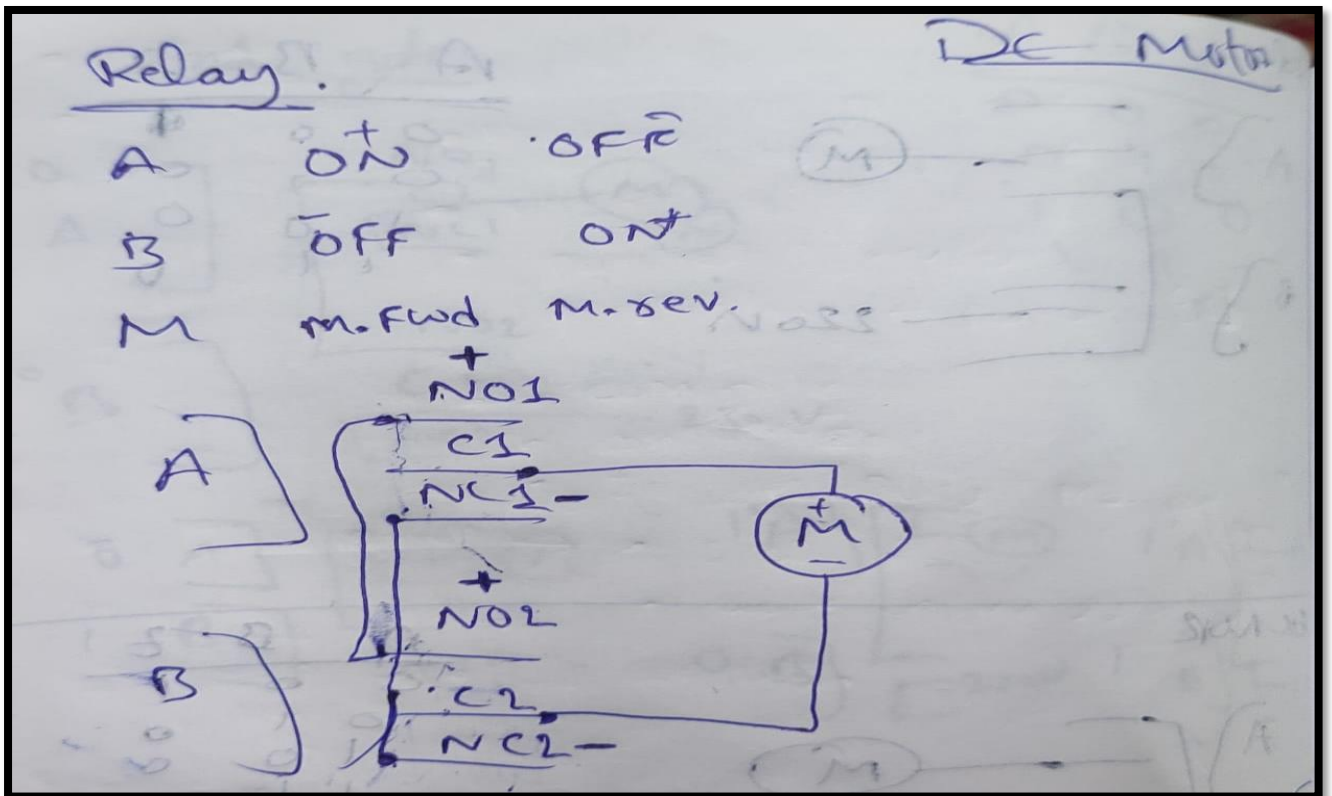 Relay. DC Motor
A ON+ OFF-
B OFF- ON+
M M.Fwd M.rev.
+
NO1
A C1
NC1 -
+ M -
+
NO2
B C2
NC2 -